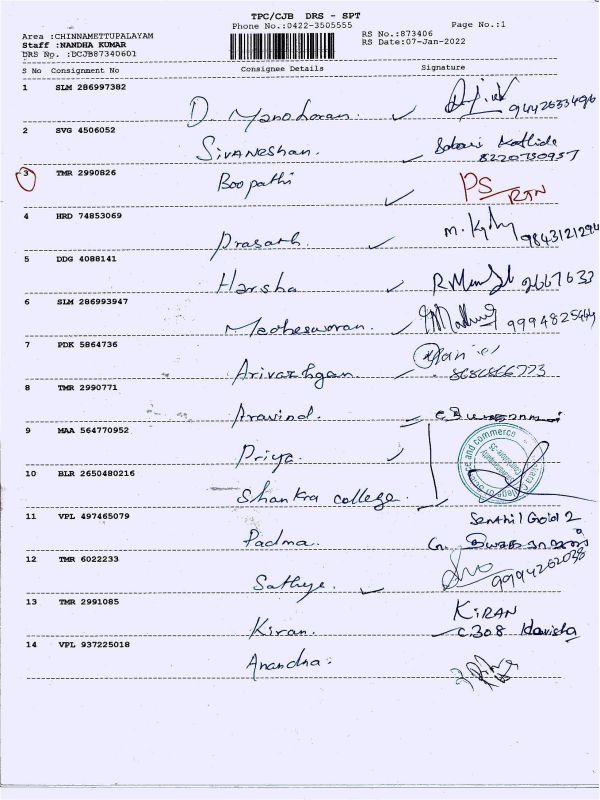 TPC/CJB DRS - SPT
Phone No.:0422-3505555 Page No.:1
Area :CHINNAMETTUPALAYAM RS No.:873406
Staff :NANDHA KUMAR RS Date:07-Jan-2022
DRS No. :DCJB87340601
S No Consignment No Consignee Details Signature
1 SLM 286997382 D. Manoharan. 9442633496
2 SVG 4506052 Sivaneshan. 8220750957
3 TMR 2990826 Boopathi PS RTN
4 HRD 74853069 Prasath. 9843121294
5 DDG 4088141 Harsha 2667633
6 SLM 286993947 Madheswaran. 9994825664
7 PDK 5864736 Arivazhgan 8682866773
8 TMR 2990771 Aravind.
9 MAA 564770952 Priya.
10 BLR 2650480216 Shankra college. Science and commerce
11 VPL 497465079 Padma. Senthil Gold 2
12 TMR 6022233 Sathye. 9994262028
13 TMR 2991085 Kiran. KIRAN
C308
14 VPL 937225018 Anandha.